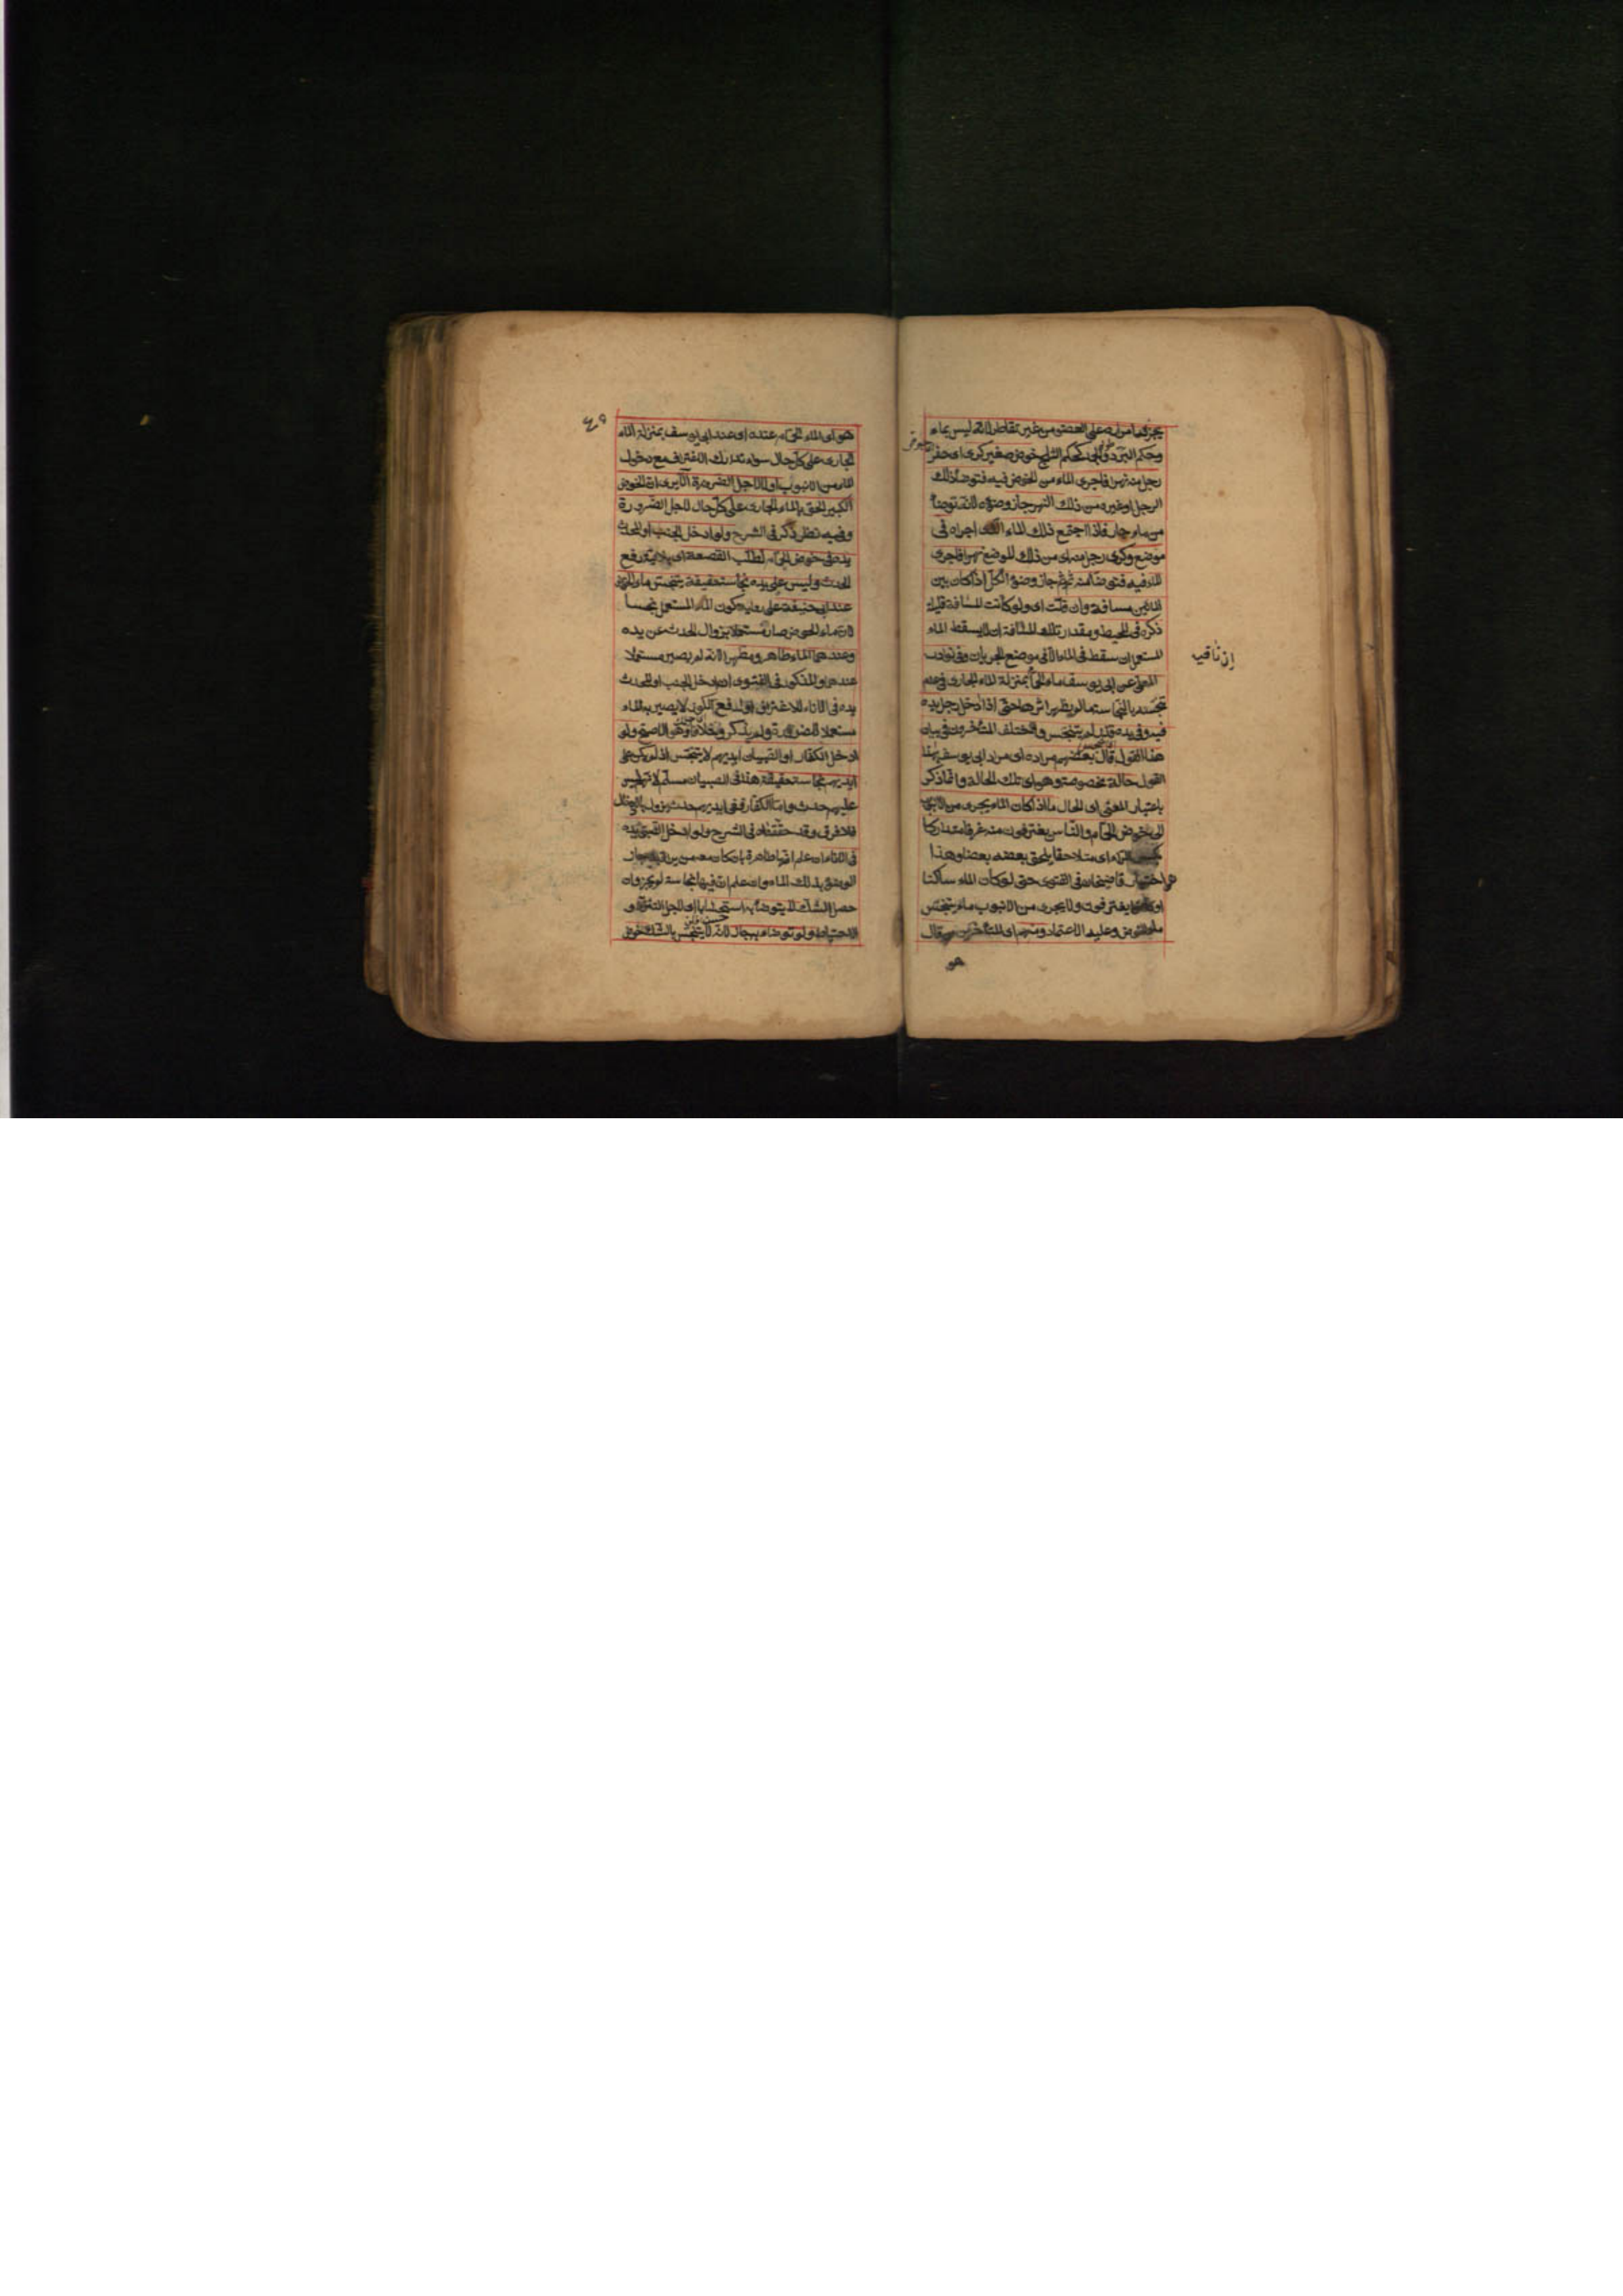 وحكم البرد والجمد كحكم الثلج حوض صغير كرى اى حفر
رجل منه نهرا فاجرى الماء من الحوض فيه فتوضأ ذلك
الرجل او غيره من ذلك النهر جاز وضوءه لانه توضأ
من ماء جار فاذا اجتمع ذلك الماء الذى اجراه فى
موضع وكرى رجل منه اى من ذلك الموضع نهرا فاجرى
الماء فيه فتوضأ منه جاز وضوء الكل اذا كان بين
المائين مسافة وان قلت اى ولو كانت المسافة قليلة
ذكره فى المحيط ومقدار تلك المسافة ان لا يسقط الماء
المستعمل ان سقط فى الماء الا فى موضع الجريان وفى نوادر
المعلى عن ابى يوسف ماء الحمام بمنزلة الماء الجارى فى عدم
تنجسه بالنجاسة ما لم يظهر اثرها حتى اذا ادخل رجل يده
فيه وفى يده قذر لم يتنجس واختلف المتأخرون فى بيان
هذا القول قال بعضهم مراده اى مراد ابى يوسف بهذا
القول حالة مخصوصة وهو اى تلك الحالة وانما ذكر
باعتبار المعنى اى الحال ما اذا كان الماء يجرى من الانبوب
الى حوض الحمام والناس يغترفون منه غرفا متداركا
اى متلاحقا يلحق بعضه بعضا وهذا
اختيار قاضيخان فى الفتوى حتى لو كان الماء ساكنا
يغترفون ولا يجرى من الانبوب ماء يتنجس
ماء الحوض وعليه الاعتماد ومنهم اى المتأخرين من قال
هو
ان ثاقب
٤٩
هو اى الماء الحمام عنده اى عند ابى يوسف بمنزلة الماء
الجارى على كل حال سواء تدارك الاغتراف مع دخول
الماء من الانبوب او لا لاجل الضرورة الا يرى ان الحوض
الكبير الحق بالماء الجارى على كل حال لاجل الضرورة
وفيه نظر ذكر فى الشرح ولو ادخل الجنب او المحدث
يده فى حوض الحمام لطلب القصعة اى بلا نية رفع
الحدث وليس على يده نجاسة حقيقة يتنجس ماء الحوض
عند ابى حنيفة على رواية كون الماء المستعمل نجسا
لان ماء الحوض صار مستعملا بزوال الحدث عن يده
وعندهما الماء طاهر ومطهر لانه لم يصير مستعملا
عندهما والمذكور فى الفتوى ان ادخل الجنب او المحدث
يده فى الاناء للاغتراف او لرفع الكوز لا يصير الماء
مستعملا للضرورة ولم يذكر خلافا وهو الاصح ولو
ادخل الكفار او الصبيان ايديهم لا يتنجس اذا لم يكن على
ايديهم نجاسة حقيقة هذا فى الصبيان مسلم لانه ليس
عليهم حدث واما الكفار ففى ايديهم حدث يزول بالاغتسال
فلا فرق وقد حققناه فى الشرح ولو ادخل الصبى يده
فى الاناء ان علم انها طاهرة بان كان معه من يراقبه جاز
الوضوء بذلك الماء وان علم ان فيها نجاسة لم يجز وان
حصل الشك لا يتوضأ به استحسانا اى لاجل التنزه و
الاحتياط ولو توضأ به جاز لانه لا يتنجس بالشك حوض